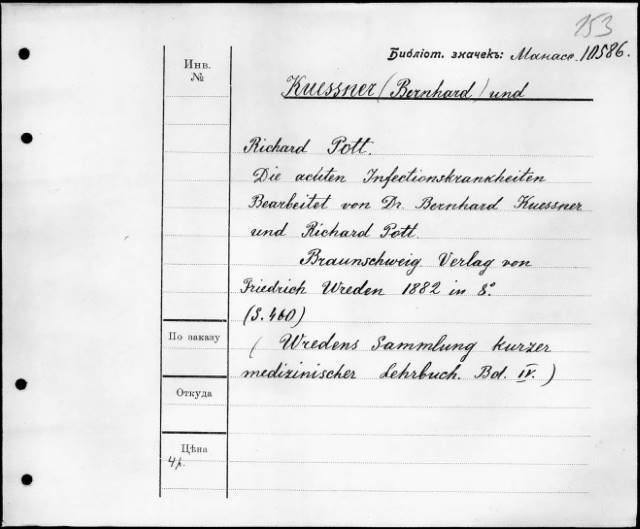 153
Библіот. значекъ: Манасс. 10586.
Инв.
№
Kuessner (Bernhard) und
Richard Pott.
Die achten Infectionskrankheiten
Bearbeitet von Dr. Bernhard Kuessner
und Richard Pott.
Braunschweig. Verlag von
Friedrich Wreden 1882 in 8°
(S. 460)
(Wredens Sammlung kurzer
medizinischer Lehrbuch. Bd. IV.)
По заказу
Откуда
Цѣна
4р.